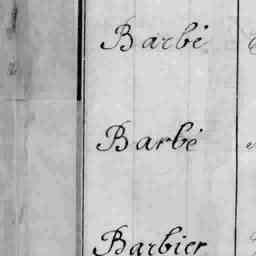 Barbé
Barbé
Barbier